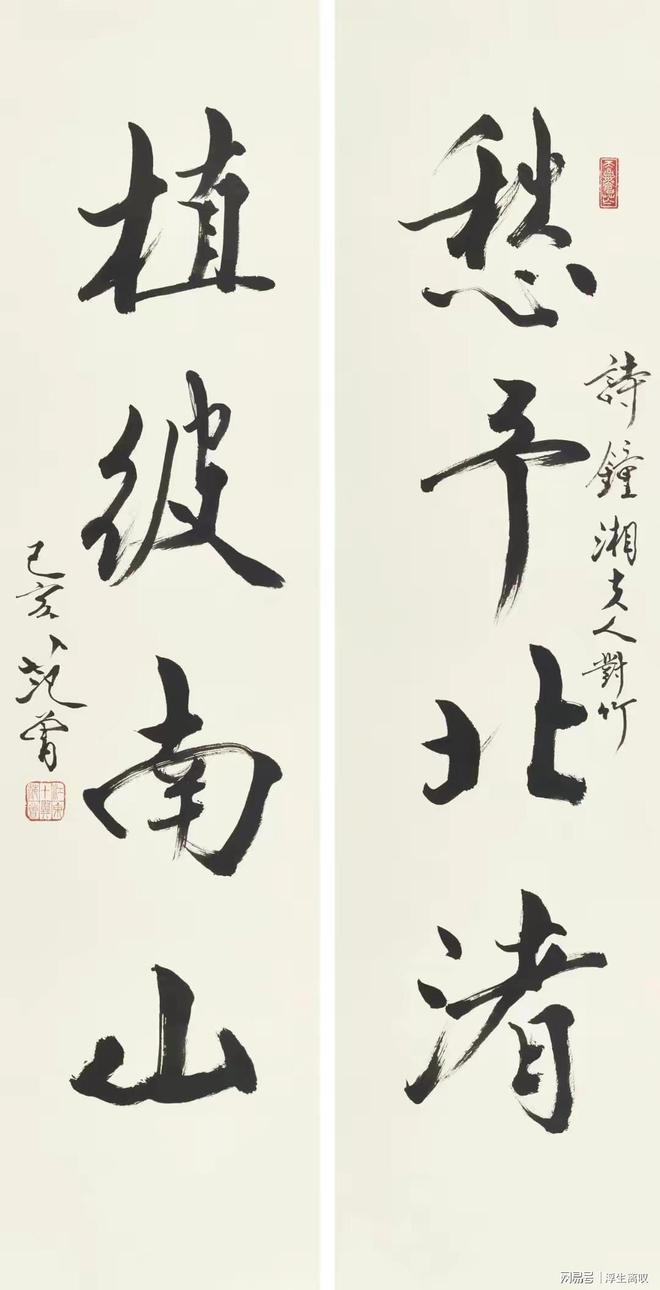 愁予北渚
詩鐘湘夫人對竹
植彼南山
己亥 范曾
网易号 | 浮生离叹